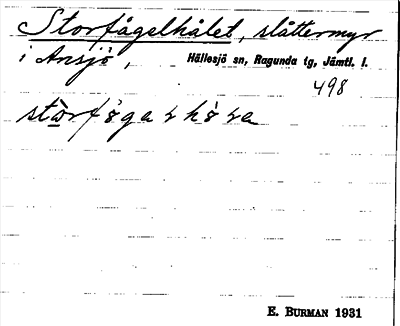 Storfågelhålet, slåttermyr
i Ansjö, Hällesjö sn, Ragunda tg, Jämtl. l.
498
E. BURMAN 1931